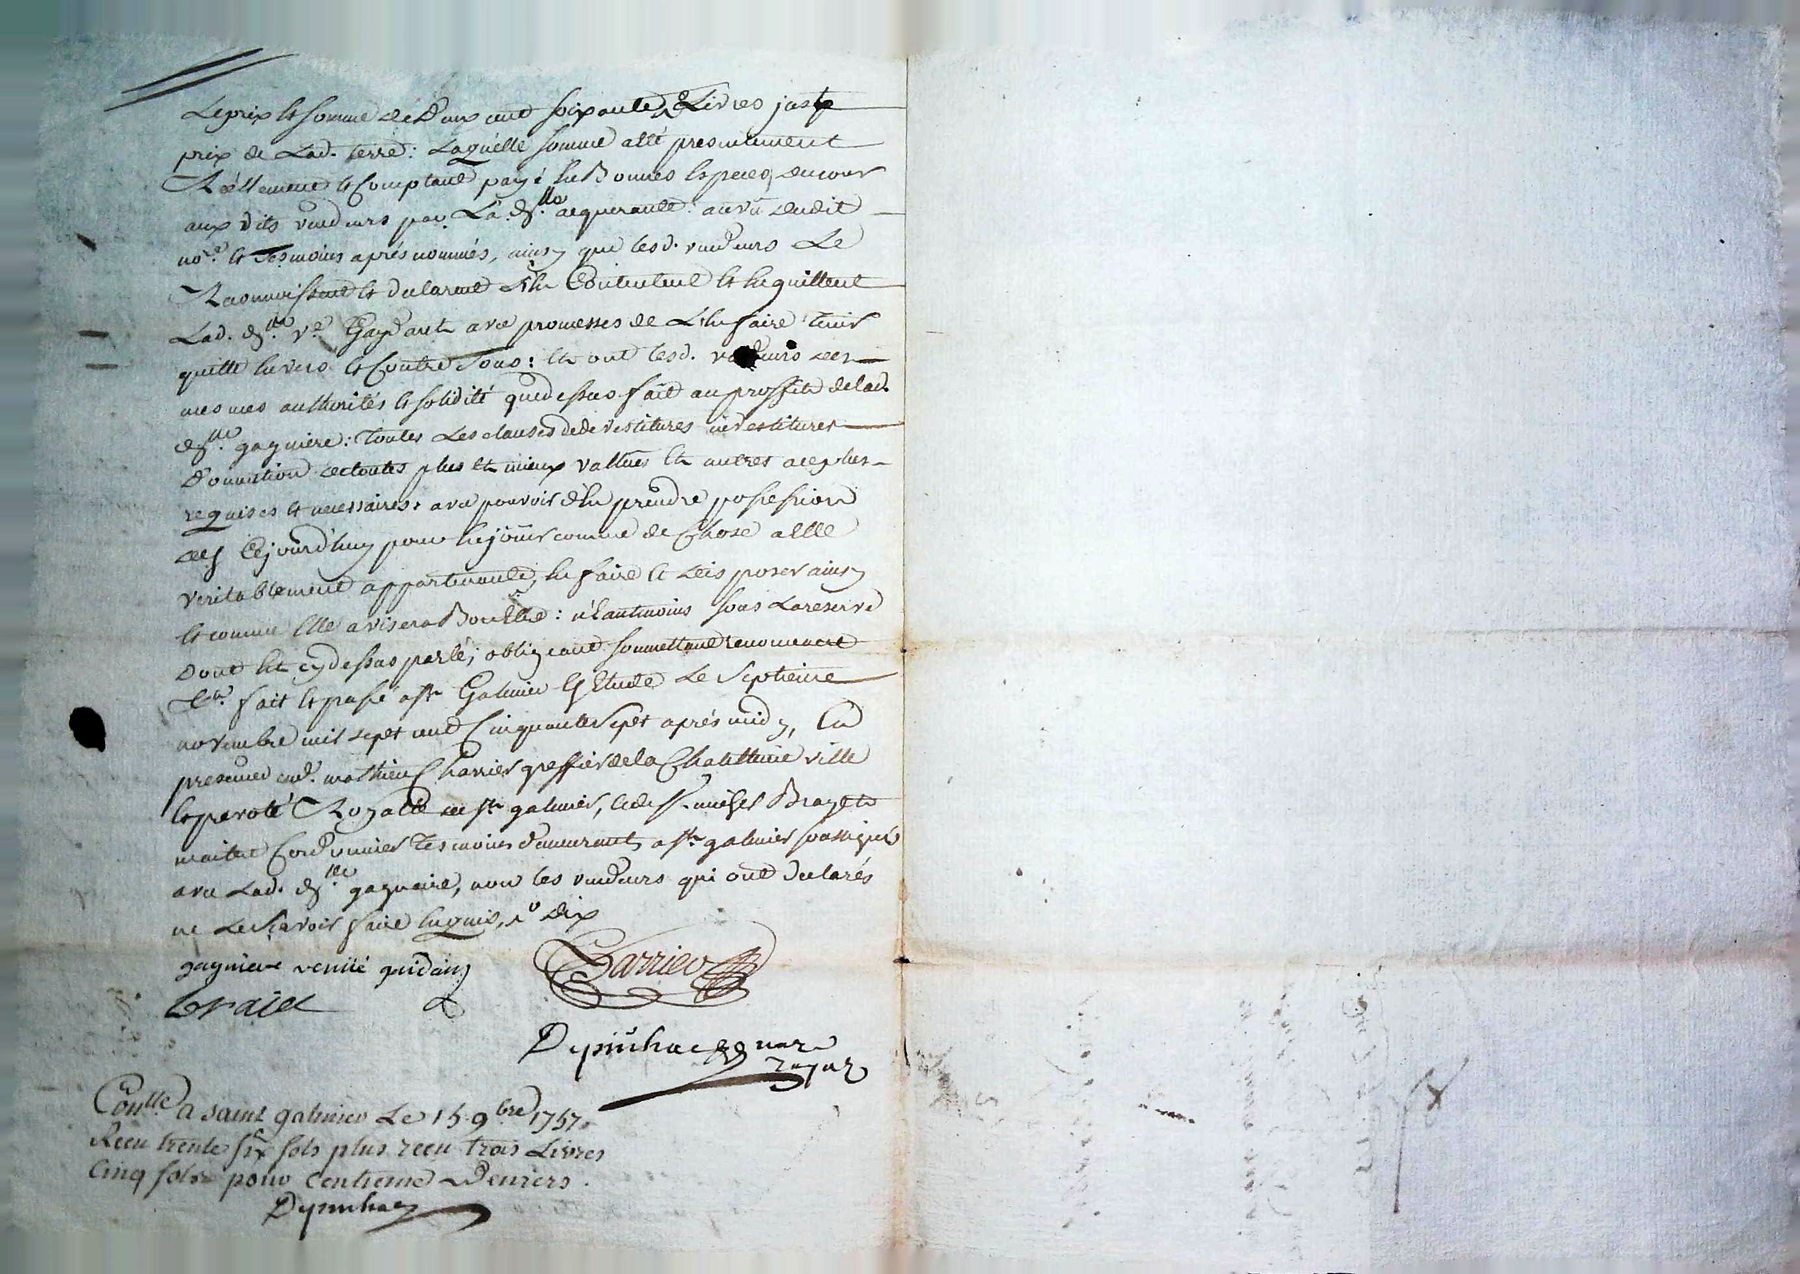 Leprix et somme de Deux cent soixante Livres juste
prix de Lad. terre: Laquelle somme a été presentement
Réellement et Comptant payé En Bonnes Especes du cour
aux dits vendeurs par La d.lle acquerante au vû dudit
no.re et Tesmoins aprés nommés, ainsy que lesd. vendeurs Le
Reconnoissent et declarent s'En Contentent et En quittent
Lad. d.lle v.e avec promesses de L'En faire Tenir
quitte Envers et Contre Tous: Et ont lesd. vendeurs des
mesmes authorités et solidité que dessus fait au proffit de lad.
d.lle gagniere: Toutes Les clauses de devestitures investitures
Donnation de toutes plus Et mieux vallües Et autres acep
requises et necessaires, avec pouvoir d'En prendre possession
des Cejourd'huy pour En joüir comme de Chose a Elle
veritablement appartenante, En faire et disposer ainsy
et comme Elle avisera Bon Estre: néantmoins sous La reserve
dont Est cy dessus parlé; obligeant soummettant renonceant
fait et passé a st Galmier Estude Le Septieme
novembre mil sept cent Cinquante sept aprés midy, En
presence de mathieu Charrier greffier de la Chatellenie ville
et prevoté Royalle de st galmier, et de s.r michel Brayet
maitre Cordonnier Tesmoins demeurants a st galmier soussignés
avec Lad. d.lle gagniere, non les vendeurs qui ont declarés
ne Le sçavoir faire Enquis, dix
gagniere
braiet
Charrier
Depuihac
royal
Con.lle a saint galmier Le 15 9bre 1757
Receu trente six sols plus receu trois Livres
Cinq sols pour Centieme Deniers.
Depuihac